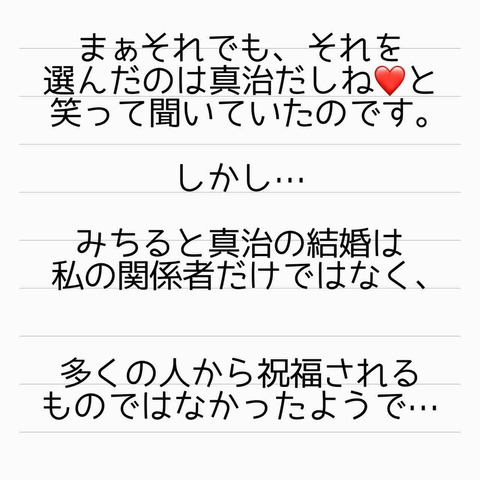 まぁそれでも、それを
選んだのは真治だしね❤️と
笑って聞いていたのです。
しかし…
みちると真治の結婚は
私の関係者だけではなく、
多くの人から祝福される
ものではなかったようで…